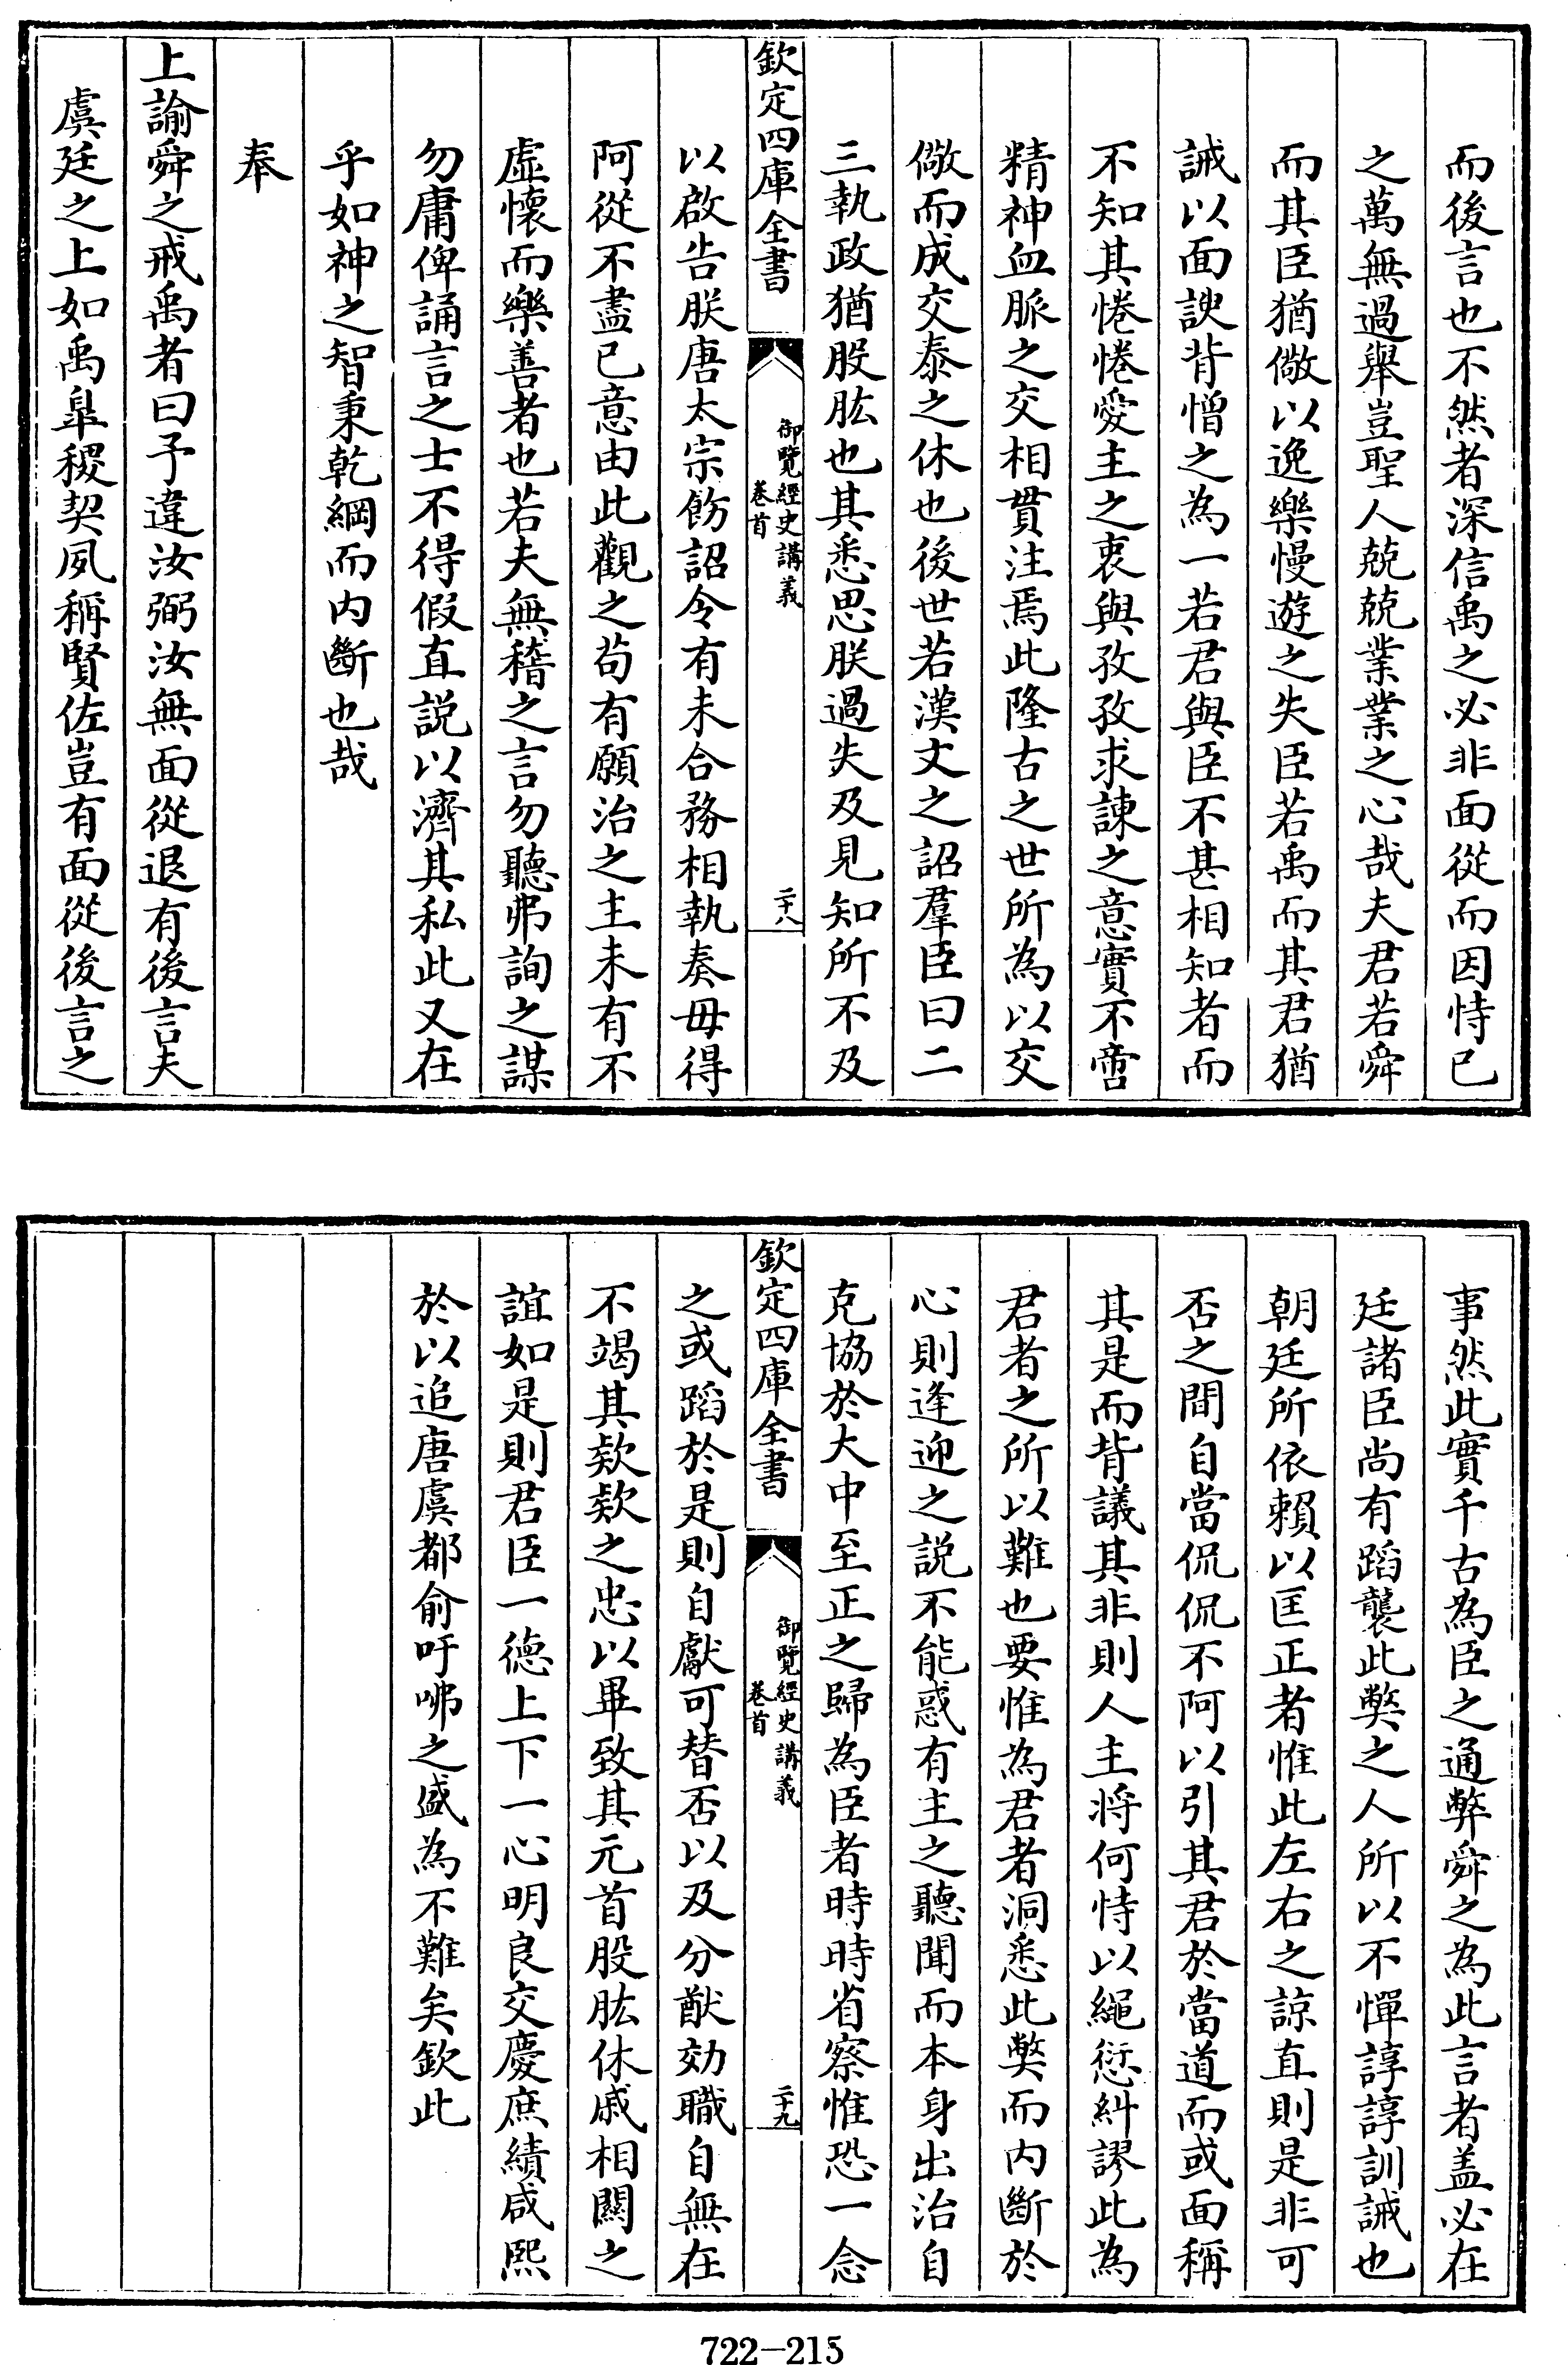 而後言也不然者深信禹之必非面從而因恃已
之萬無過舉豈聖人兢兢業業之心哉夫君若舜
而其臣猶儆以逸樂慢遊之失臣若禹而其君猶
誡以面諛背憎之為一若君與臣不甚相知者而
不知其惓惓愛主之衷與孜孜求諫之意實不啻
精神血脈之交相貫注焉此隆古之世所為以交
儆而成交泰之休也後世若漢文之詔羣臣曰二
三執政猶股肱也其悉思朕過失及見知所不及
欽定四庫全書
御覽經史講義
卷首
二十八
以啟告朕唐太宗飭詔令有未合務相執奏毋得
阿從不盡已意由此觀之苟有願治之主未有不
虛懷而樂善者也若夫無稽之言勿聽弗詢之謀
勿庸俾誦言之士不得假直説以濟其私此又在
乎如神之智秉乾綱而内斷也哉
奉
上諭舜之戒禹者曰予違汝弼汝無面從退有後言夫
虞廷之上如禹臯稷契夙稱賢佐豈有面從後言之
事然此實千古為臣之通弊舜之為此言者盖必在
廷諸臣尚有蹈襲此弊之人所以不憚諄諄訓誡也
朝廷所依賴以匡正者惟此左右之諒直則是非可
否之間自當侃侃不阿以引其君於當道而或面稱
其是而背議其非則人主将何恃以繩愆糾謬此為
君者之所以難也要惟為君者洞悉此弊而内斷於
心則逢迎之説不能惑有主之聽聞而本身出治自
克協於大中至正之歸為臣者時時省察惟恐一念
欽定四庫全書
御覽經史講義
卷首
二十九
之或蹈於是則自獻可替否以及分猷効職自無在
不竭其欵欵之忠以畢致其元首股肱休戚相關之
誼如是則君臣一德上下一心明良交慶庶績咸熙
於以追唐虞都俞吁咈之盛為不難矣欽此
722-215